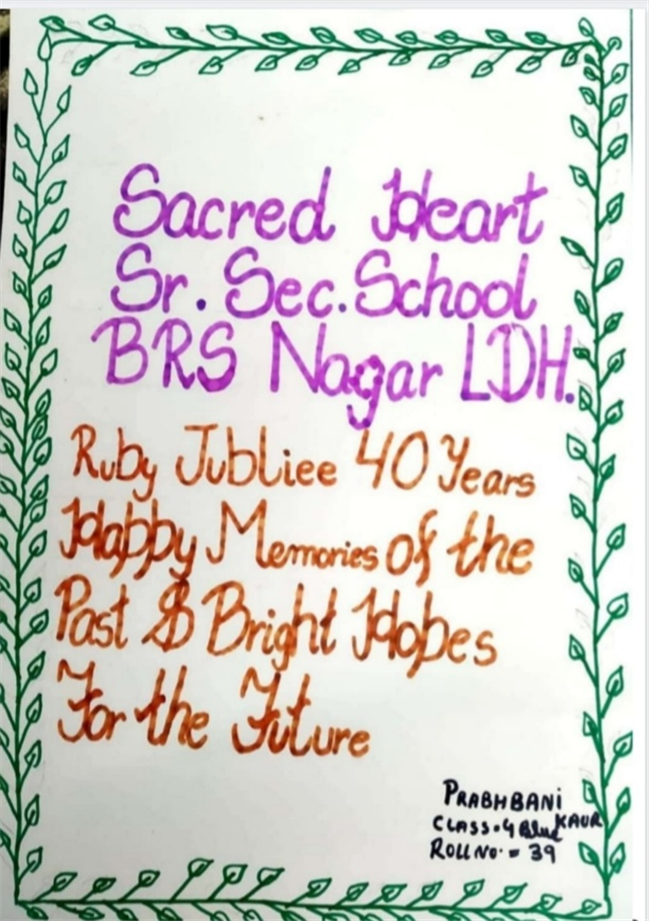 Sacred Heart
Sr. Sec. School
BRS Nagar LDH.
Ruby Jubliee 40 Years
Happy Memories of the
Past & Bright Hopes
For the Future
PRABHBANI
KAUR
CLASS-4 Blue
ROLL NO. = 39